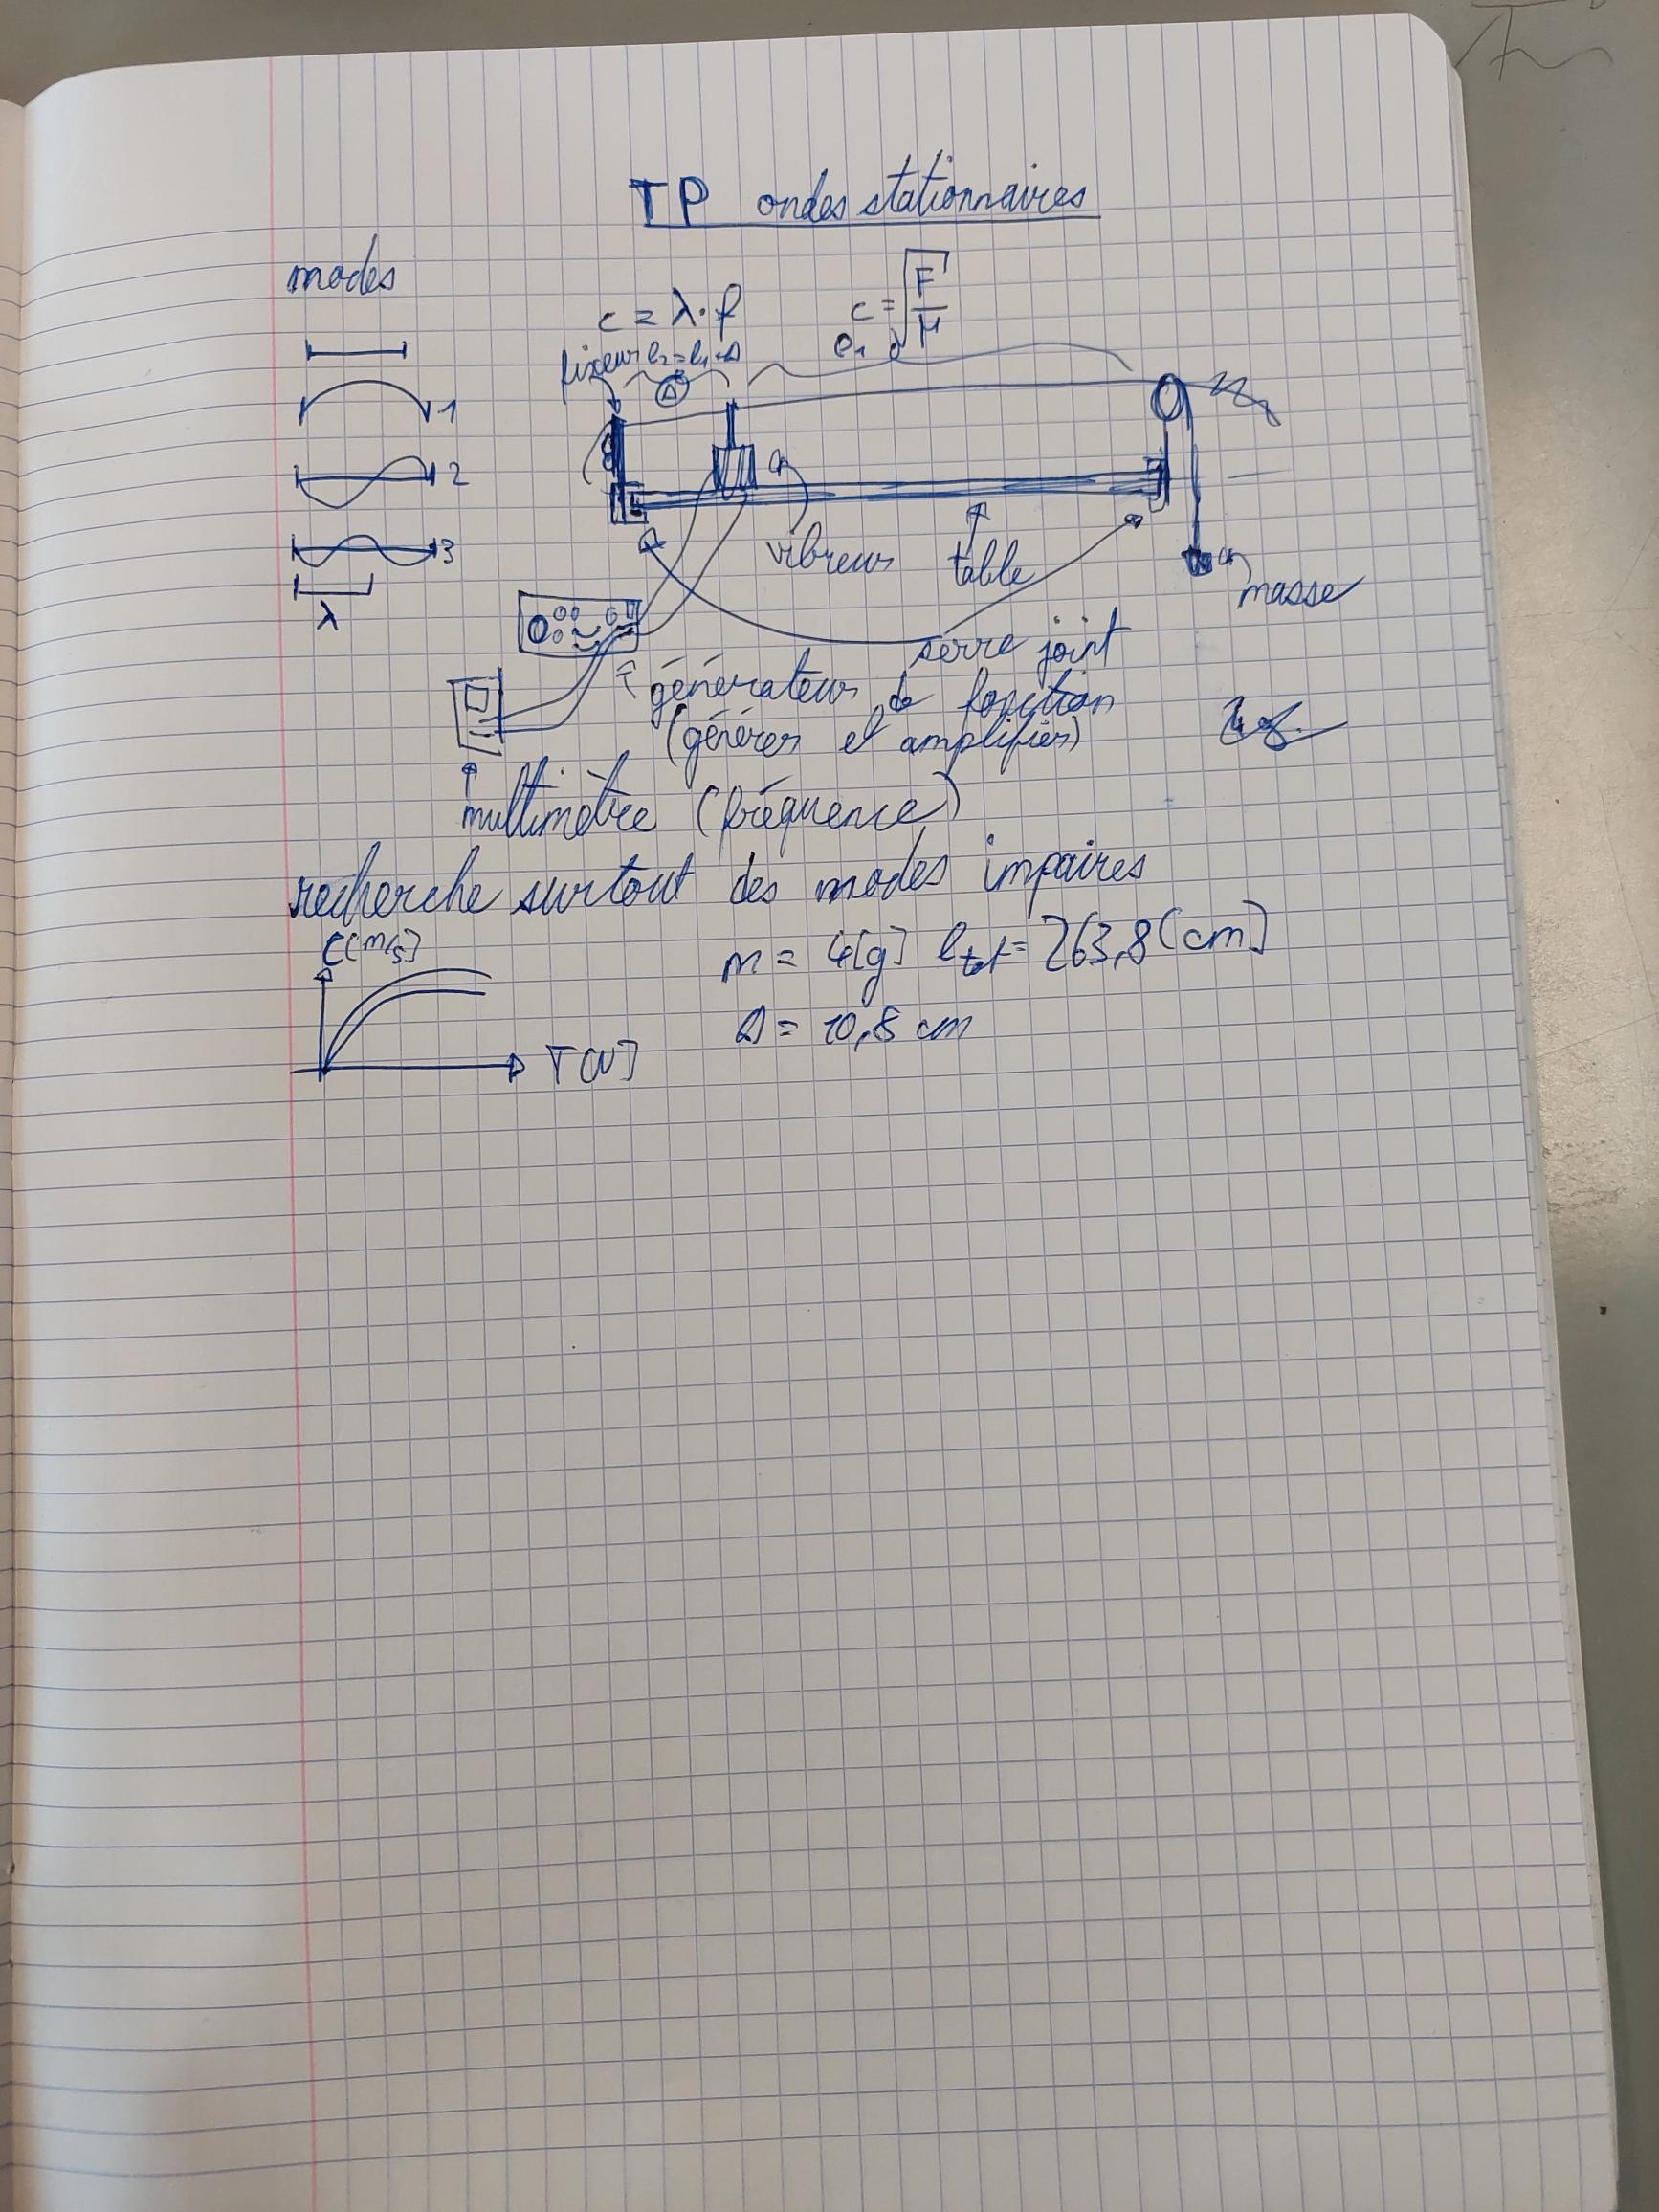 TP ondes stationnaires
modes
c = λ·f
c = √(F/μ)
fixeur l₂=l₁+Δ
Δ
l₁
1
2
3
λ
vibreur
table
masse
serre joint
générateur de fonction
(générer et amplifier)
multimètre (fréquence)
recherche surtout des modes impaires
C[m/s]
m = 4[g] l tot = 263,8[cm]
Δ = 10,8 cm
T[N]